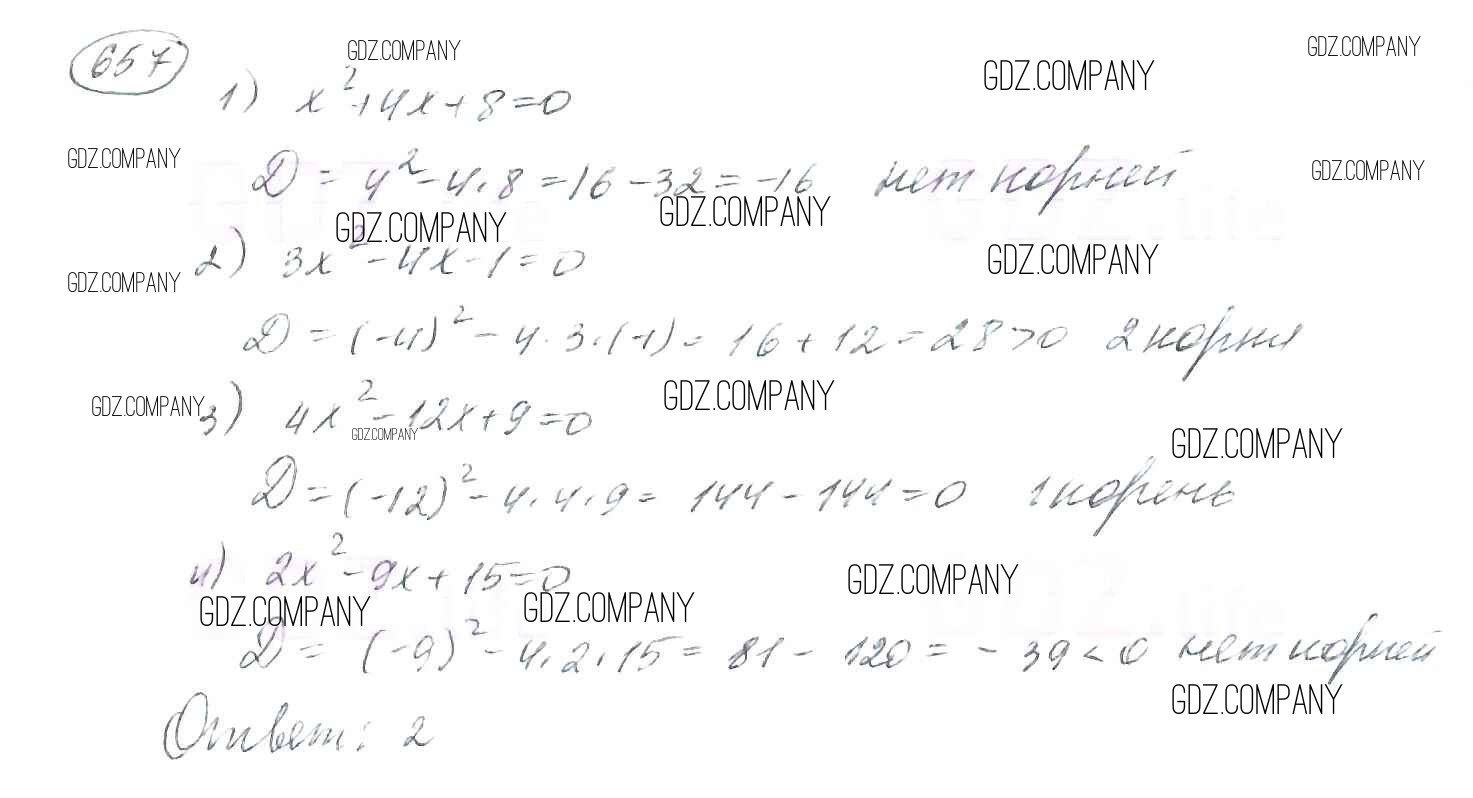 657
GDZ.COMPANY
GDZ.COMPANY
GDZ.COMPANY
1) x²+4x+8=0
GDZ.COMPANY
GDZ.COMPANY
D = 4²-4·8=16-32=-16 нет корней
GDZ.COMPANY
GDZ.COMPANY
GDZ.COMPANY
2) 3x²-4x-1=0
GDZ.COMPANY
D=(-4)²-4·3·(-1)=16+12=28>0 2 корня
GDZ.COMPANY
GDZ.COMPANY
3) 4x²-12x+9=0
GDZ.COMPANY
GDZ.COMPANY
D=(-12)²-4·4·9=144-144=0 1 корень
4) 2x²-9x+15=0
GDZ.COMPANY
GDZ.COMPANY
GDZ.COMPANY
D=(-9)²-4·2·15=81-120=-39<0 нет корней
GDZ.COMPANY
Ответ: 2